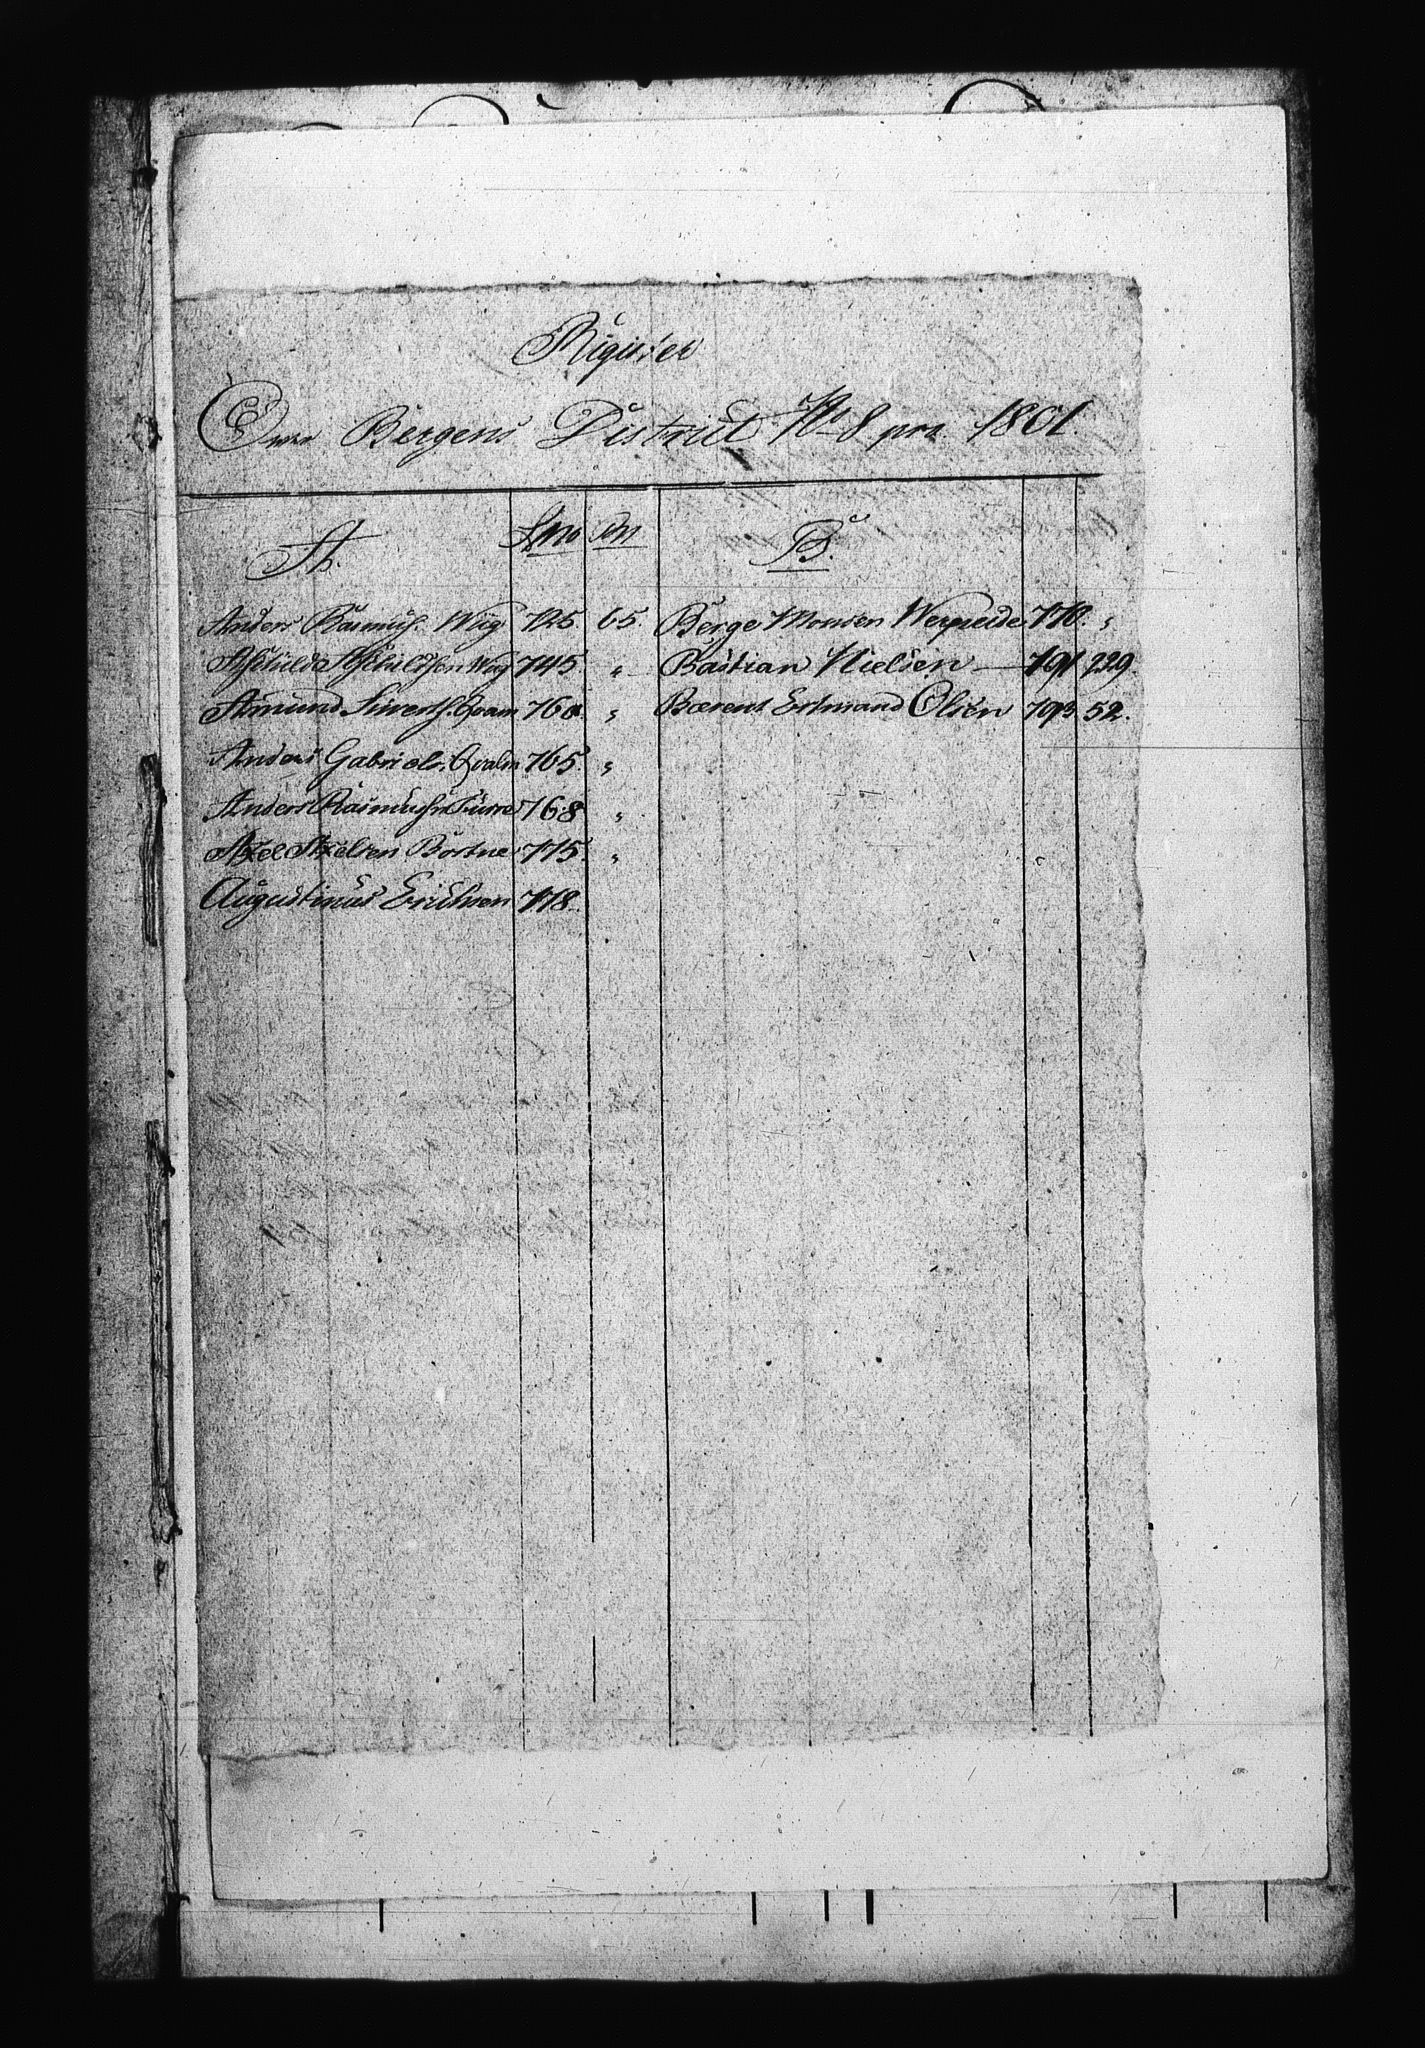 Register
Over Bergens District No 8 pro 1801.
A. Lno On B.
Anders Rasmus. Wiig 725 65. Berge Monsen Werpeide 770. "
Eschild Eschildsen Waag 745 " Bastian Nielsen 791 229.
Amund Siverts. Qvam 760 " Bærent Ertmand Olsen 793 52.
Anders Gabriels. Qvalm 765. "
Anders Rasmusen Furre 768 "
Axel Axelsen Bortne 775. "
Augustinus Erichsen 778.